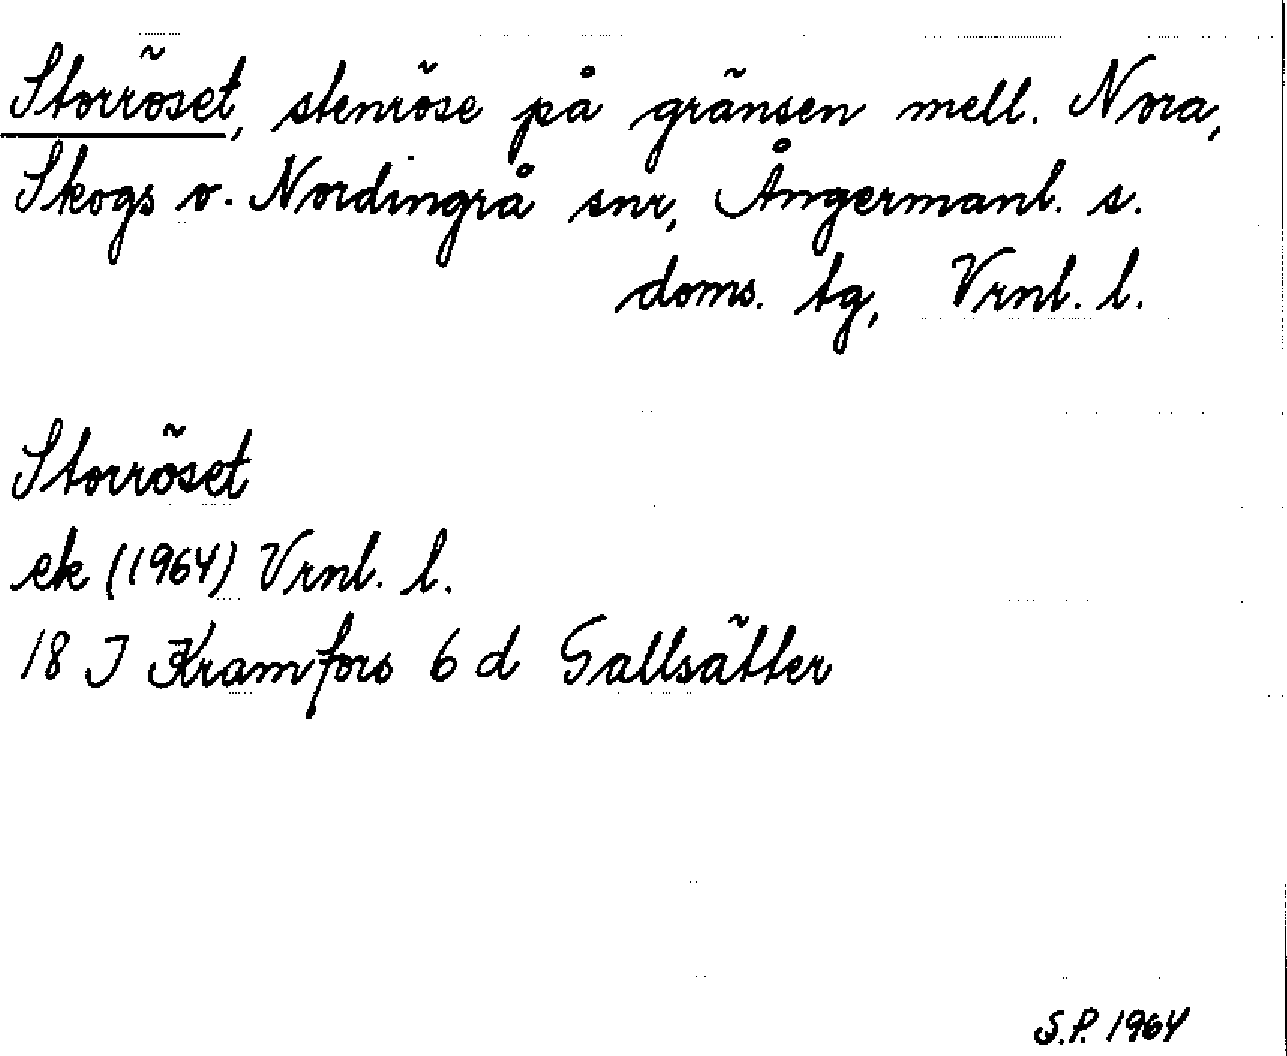 Storröset, stenröse på gränsen mell. Nora,
Skogs o. Nordingrå snr, Ångermanl. s.
doms. tg, Vrnl. l.
Storröset
ek (1964) Vrnl. l.
18 J Kramfors 6 d Gallsätter
S.P. 1964